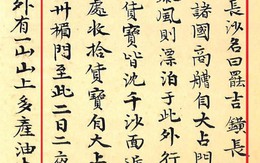 長沙名曰罷吉鐄長
諸國商舶自大占門
風則漂泊于此外行
貨寶皆沉于沙面近
處收拾貨寶自大占
卅楣門至此二日二
外有一山山上多產油